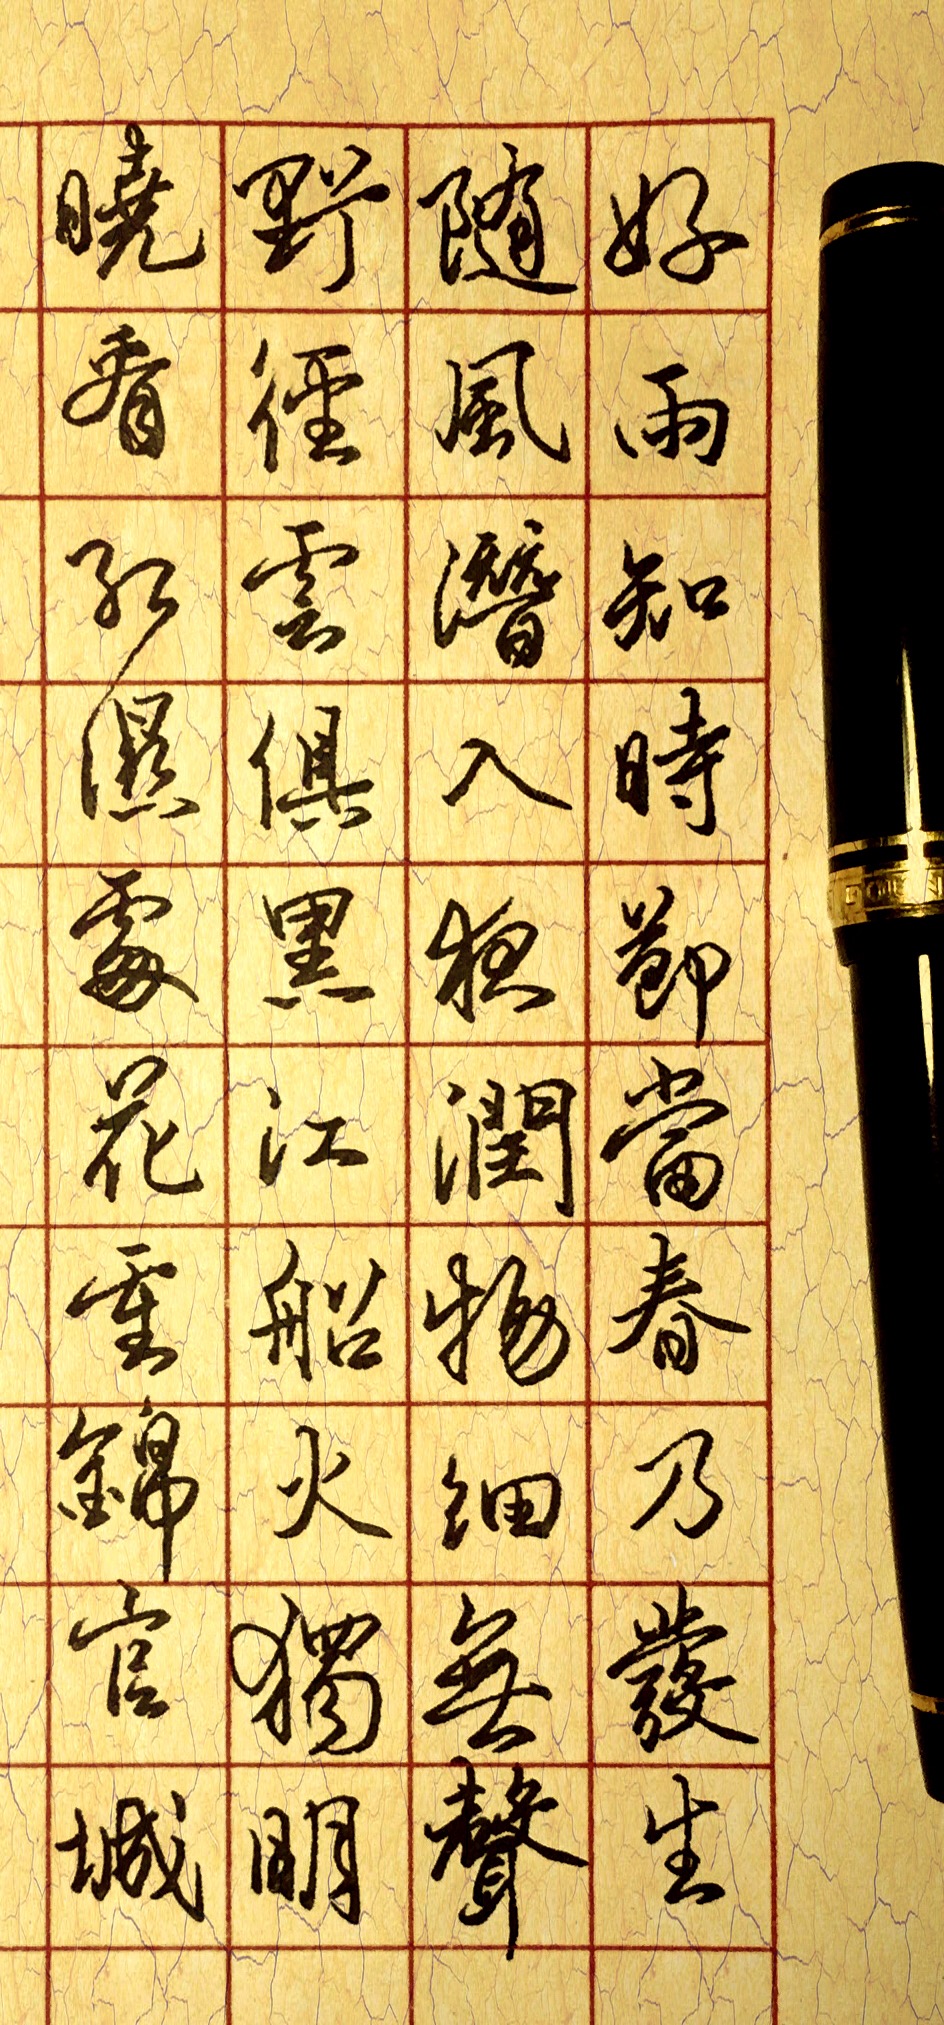 好雨知時節當春乃發生
隨風潛入夜潤物细無聲
野徑雲俱黑江船火獨明
曉看紅濕處花重錦官城